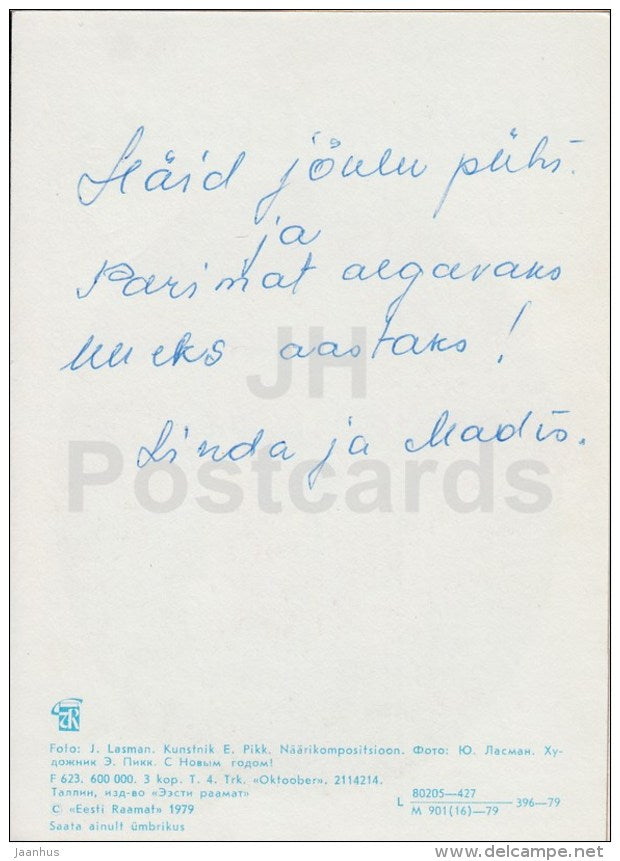 Häid jõulu pühi
ja
Parimat algavaks
uueks aastaks!
Linda ja Madis.
JH
Postcards
Foto: J. Lasman. Kunstnik E. Pikk. Näärikompositsioon. Фото: Ю. Ласман. Ху-
дожник Э. Пикк. С Новым годом!
F 623. 600 000. 3 kop. T. 4. Trk. «Oktoober». 2114214.
Таллин, изд-во «Ээсти раамат»
© «Eesti Raamat» 1979
Saata ainult ümbrikus
L 80205—427 396—79
M 901(16)—79
jaanhus
www.delcampe.net